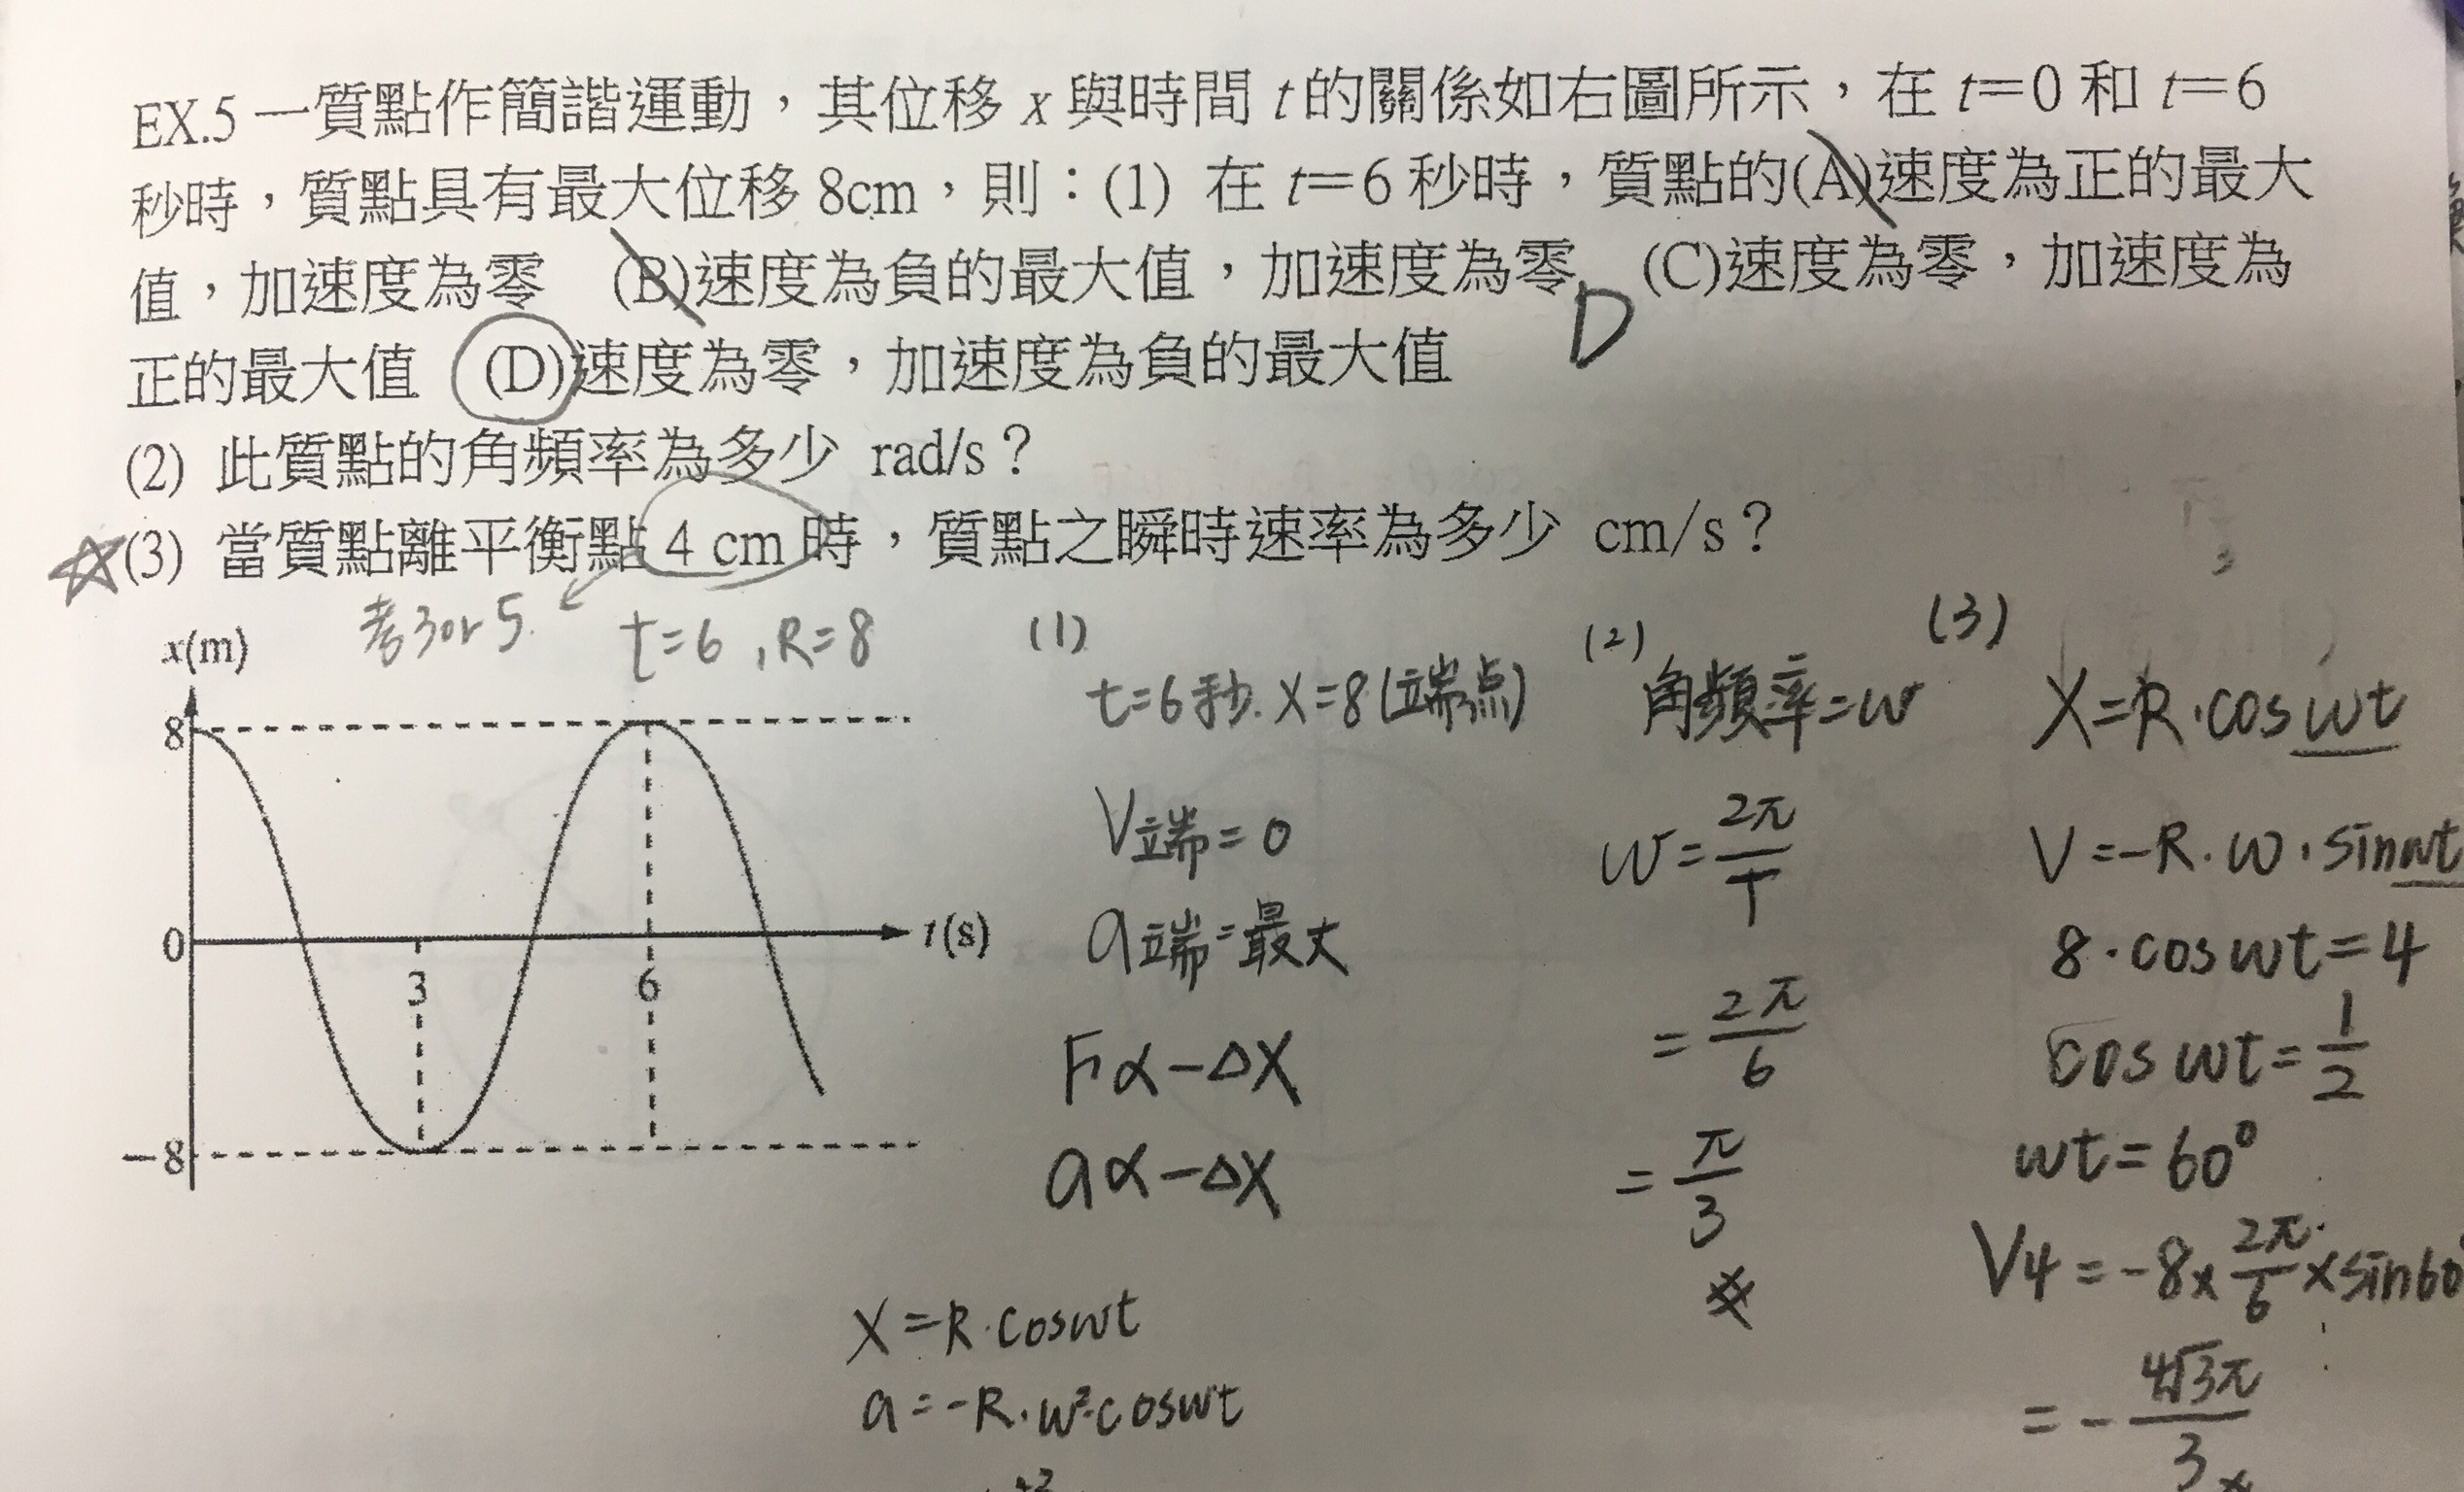 EX.5 一質點作簡諧運動，其位移 x 與時間 t 的關係如右圖所示，在 t=0 和 t=6
秒時，質點具有最大位移 8cm，則：(1) 在 t=6 秒時，質點的(A)速度為正的最大
值，加速度為零 (B)速度為負的最大值，加速度為零 (C)速度為零，加速度為
D
正的最大值 (D)速度為零，加速度為負的最大值
(2) 此質點的角頻率為多少 rad/s？
☆(3) 當質點離平衡點 4 cm 時，質點之瞬時速率為多少 cm/s？
考3or5. t=6 , R=8
x(m)
8
0
t(s)
3
6
-8
(1)
t=6秒. X=8(端点)
V端=0
a端=最大
F∝-ΔX
a∝-ΔX
X=R·coswt
a=-R·w²·coswt
(2)
角頻率=w
w=2π/T
=2π/6
=π/3
(3)
X=R·coswt
V=-R·w·sinwt
8·coswt=4
coswt=1/2
wt=60°
V4=-8×2π/6×sin60°
=-4√3π/3